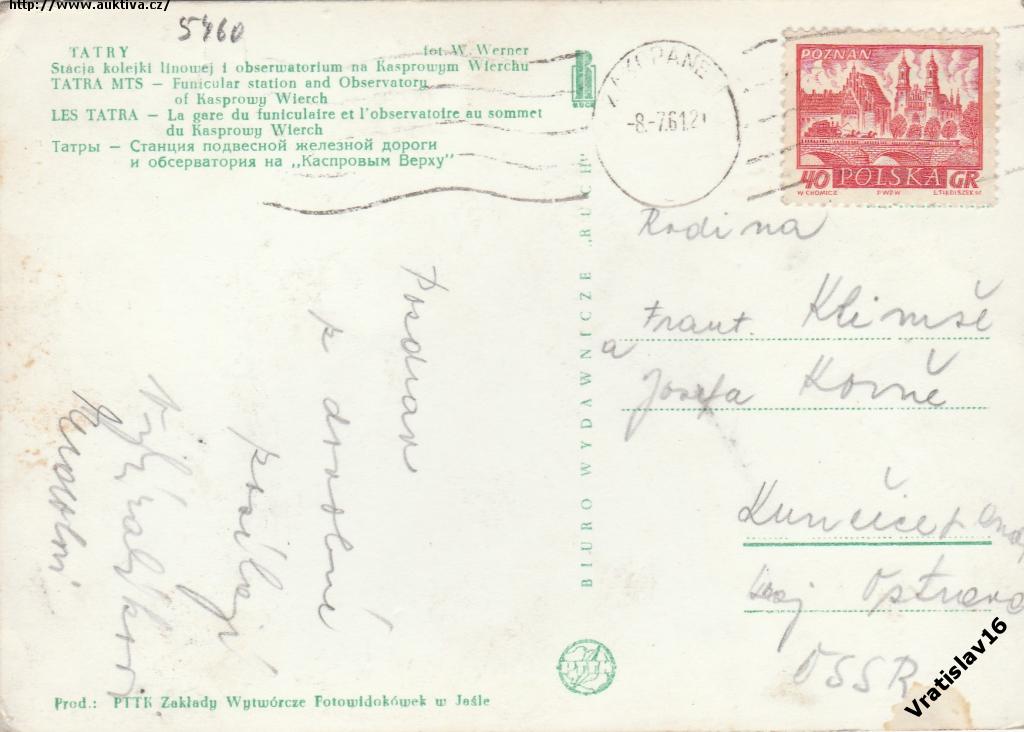 http://www.auktiva.cz/
5460
TATRY fot. W. Werner
Stacja kolejki linowej i obserwatorium na Kasprowym Wierchu
TATRA MTS — Funicular station and Observatory
of Kasprowy Wierch
LES TATRA — La gare du funiculaire et l'observatoire au sommet
du Kasprowy Wierch
Татры — Станция подвесной железной дороги
и обсерватория на „Каспровым Верху"
RUCH
ZAKOPANE
-8.-7.61.21
POZNAŃ
40 POLSKA GR
W. CHOMICZ PWPW
BIURO WYDAWNICZE „RUCH"
Rodina
Frant. Klimše
a
Josefa
Kunčice p
kraj Ostrava
ČSSR
Pozdrav
z
posílají
PTTK
Prod.: PTTK Zakłady Wytwórcze Fotowidokówek w Jaśle
Vratislav16